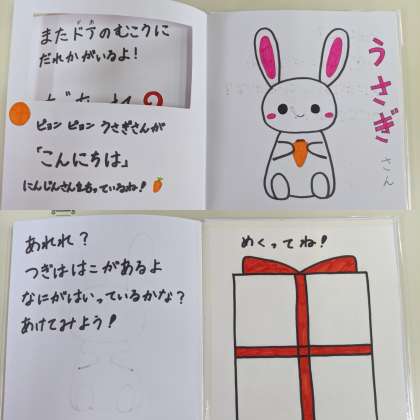 またドアのむこうに
だれかがいるよ!
ピョン ピョン うさぎさんが
「こんにちは」
にんじんさんをもっているね!
うさぎ
さん
あれれ?
つぎは はこがあるよ
なにがはいっているかな?
あけてみよう!
めくってね!